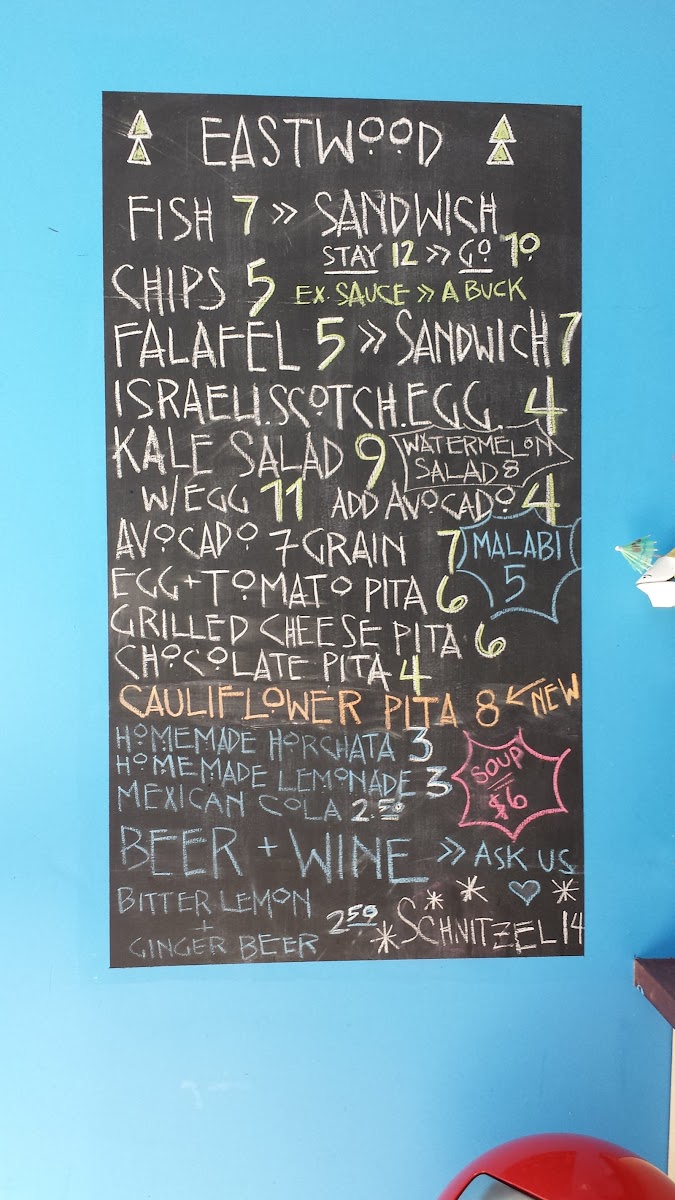 EASTWOOD
FISH 7 » SANDWICH
STAY 12 » GO 10
CHIPS 5 EX. SAUCE » A BUCK
FALAFEL 5 » SANDWICH 7
ISRAELI.SCOTCH.EGG. 4
KALE SALAD 9 WATERMELON
SALAD 8
W/EGG 11 ADD AVOCADO 4
AVOCADO 7 GRAIN 7 MALABI
5
EGG + TOMATO PITA 6
GRILLED CHEESE PITA 6
CHOCOLATE PITA 4
CAULIFLOWER PITA 8 ← NEW
HOMEMADE HORCHATA 3
HOMEMADE LEMONADE 3 SOUP
$6
MEXICAN COLA 2.50
BEER + WINE » ASK US
BITTER LEMON
+ 2.50
GINGER BEER
* SCHNITZEL 14